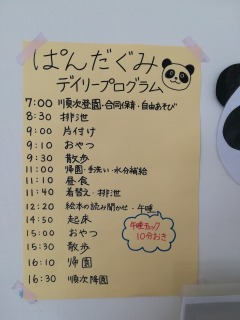 ぱんだぐみ
デイリープログラム
7:00 順次登園・合同保育・自由あそび
8:30 排泄
9:00 片付け
9:10 おやつ
9:30 散歩
11:00 帰園・手洗い・水分補給
11:10 昼食
11:40 着替え・排泄
12:20 絵本の読み聞かせ・午睡
14:50 起床
15:00 おやつ
15:30 散歩
16:10 帰園
16:30 順次降園
午睡チェック
10分おき